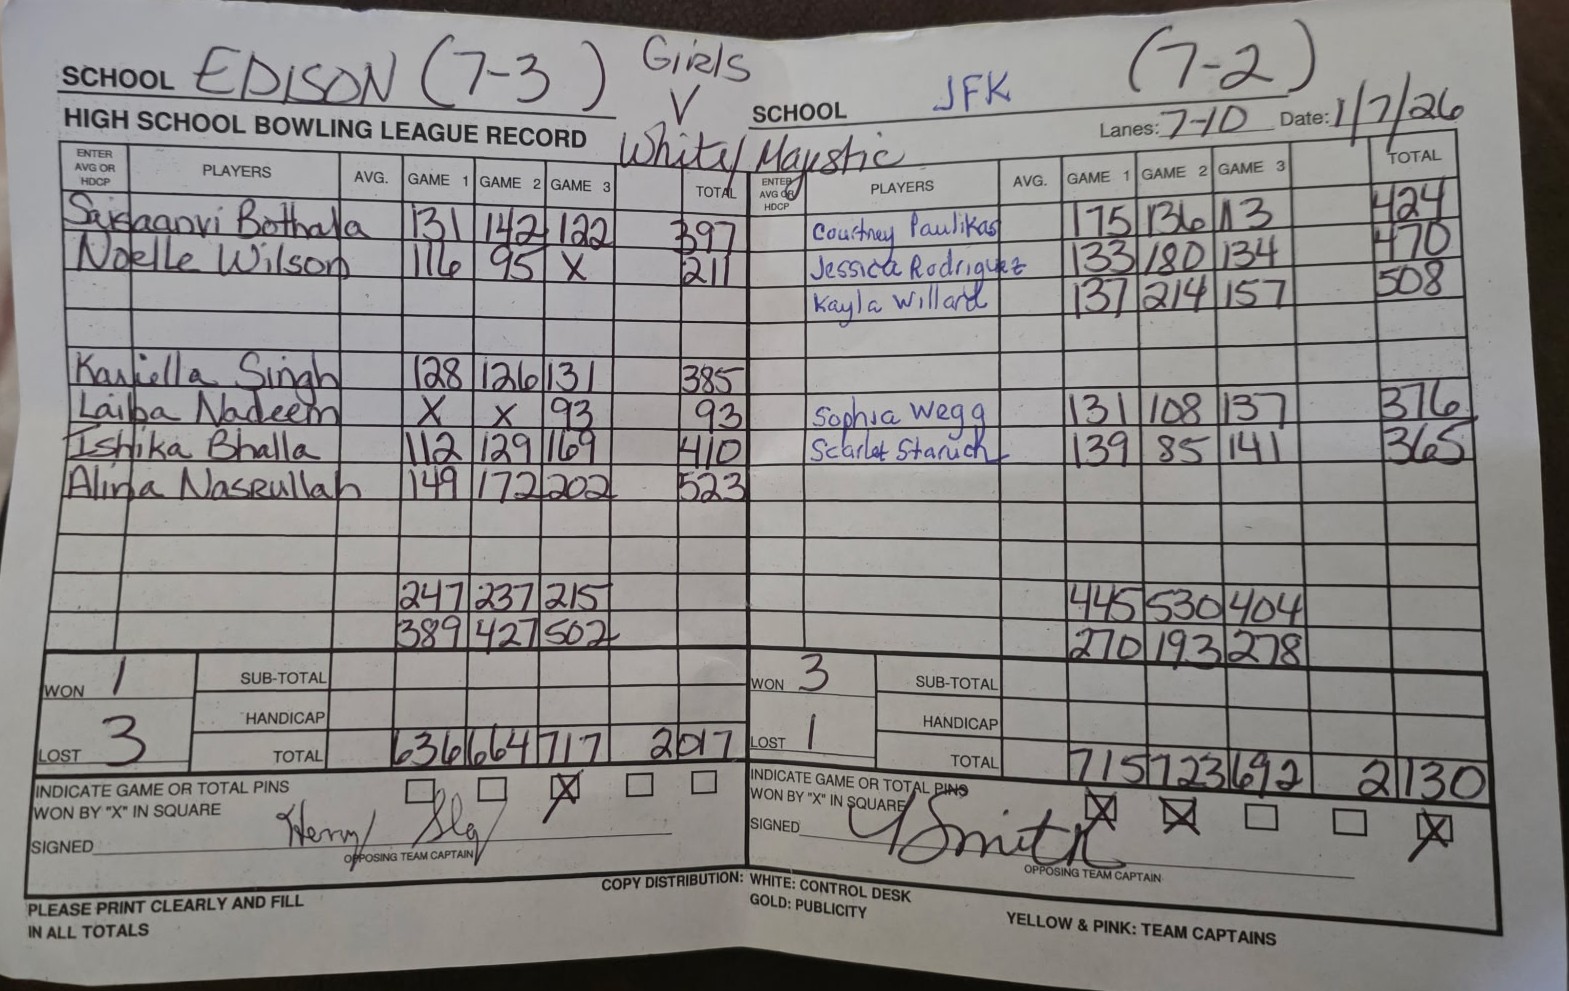 SCHOOL EDISON (7-3) Girls SCHOOL JFK (7-2)
V
HIGH SCHOOL BOWLING LEAGUE RECORD White/Majestic Lanes: 7-10 Date: 1/7/26
ENTER AVG OR HDCP PLAYERS AVG. GAME 1 GAME 2 GAME 3 TOTAL ENTER AVG OR HDCP PLAYERS AVG. GAME 1 GAME 2 GAME 3 TOTAL
Bothala 131 142 122 397 Courtney Paulikas 175 136 113 424
Noelle Wilson 116 95 X 211 Jessica Rodriguez 133 180 134 470
Kayla Willard 137 214 157 508
Singh 128 126 131 385
Laiba Nadeem X X 93 93 Sophia Wegg 131 108 137 376
Ishika Bhalla 112 129 169 410 Scarlet Staruch 139 85 141 365
Alina Nasrullah 149 172 202 523
247 237 215 445 530 404
389 427 502 270 193 278
WON 1 SUB-TOTAL WON 3 SUB-TOTAL
HANDICAP HANDICAP
LOST 3 TOTAL 636 664 717 2017 LOST 1 TOTAL 715 723 692 2130
INDICATE GAME OR TOTAL PINS INDICATE GAME OR TOTAL PINS
WON BY "X" IN SQUARE X WON BY "X" IN SQUARE X X X
SIGNED Henry SIGNED Smith
OPPOSING TEAM CAPTAIN OPPOSING TEAM CAPTAIN
PLEASE PRINT CLEARLY AND FILL COPY DISTRIBUTION: WHITE: CONTROL DESK
IN ALL TOTALS GOLD: PUBLICITY YELLOW & PINK: TEAM CAPTAINS